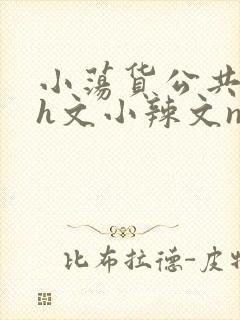 小荡货公共
h文小辣文n
比布拉德-皮特